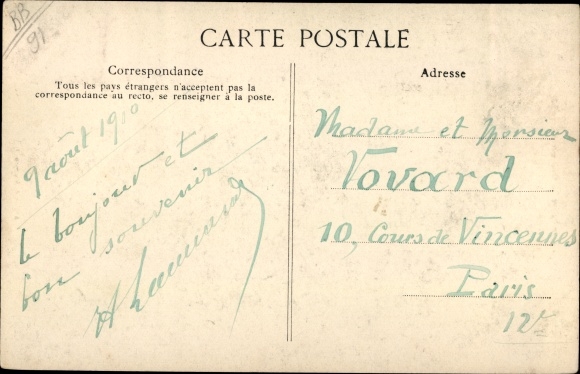 BB
91
CARTE POSTALE
Correspondance
Tous les pays étrangers n'acceptent pas la
correspondance au recto, se renseigner à la poste.
9 août 1910
le bonjour et
bon souvenir
Adresse
Madame et Monsieur
Vovard
10, Cours de Vincennes
Paris
12e